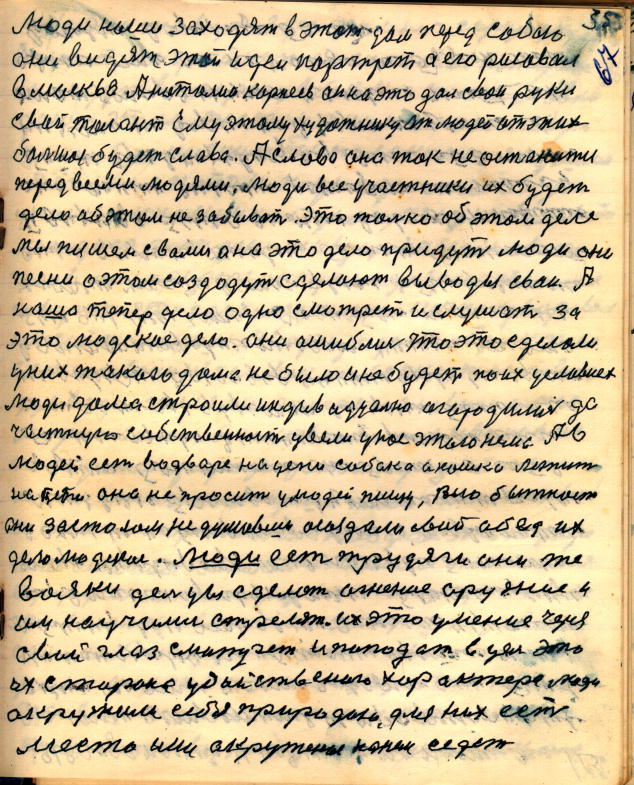 35
67
Люди наши заходят в этот дом перед собою
они видят этой идеи портрет а его рисовал
в москва Анатолий карпеев он на это дал свои руки
свой талант Ему этому художнику от людей от этих
большая будет слава. А слово она так не останити
перед всеми людями. люди все участники их будет
дело об этом не забыват. это толко об этом деле
мы пишем с вами а на это дело придут люди они
песни о этом создодут сделают выводы сваи. А
нашо тепер дело одно смотрет и слушат за
это людское дело. они ошиблис что это сделали
у них такого дома не было и не будет по их условиех
люди дома строили индивидуално огородилис до
частную собственност увели у нас этого нема А в
людей ест водваре на цепи собака а кошка лежит
на печи она не просит у людей пищу, в них бытност
они за столом, не душевны создали свой обед их
дело людское. Люди ест трудяги они же
вояки дел увы сделат огненое оружие и
им научили стрелят. их это умение через
свой глаз смотрет и попадат в цел это
их старона убийственого характера люди
окружили себя природою, для них ест
место или окружены кони седет